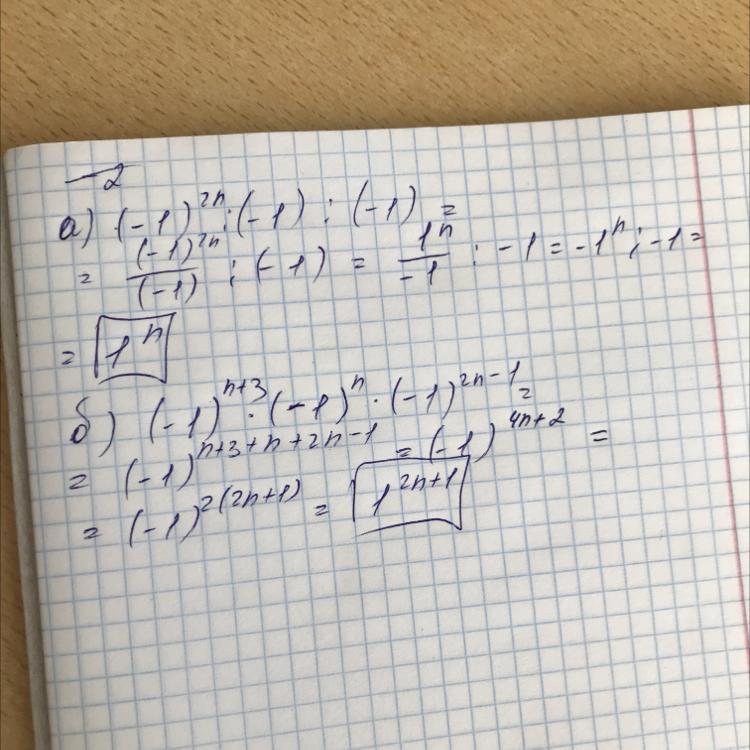 2
а) (-1)^{2n} : (-1) : (-1) =
= \frac{(-1)^{2n}}{(-1)} : (-1) = \frac{1^n}{-1} : -1 = -1^n : -1 =
= 1^n
б) (-1)^{n+3} · (-1)^n · (-1)^{2n-1} =
= (-1)^{n+3+n+2n-1} = (-1)^{4n+2} =
= (-1)^{2(2n+1)} = 1^{2n+1}